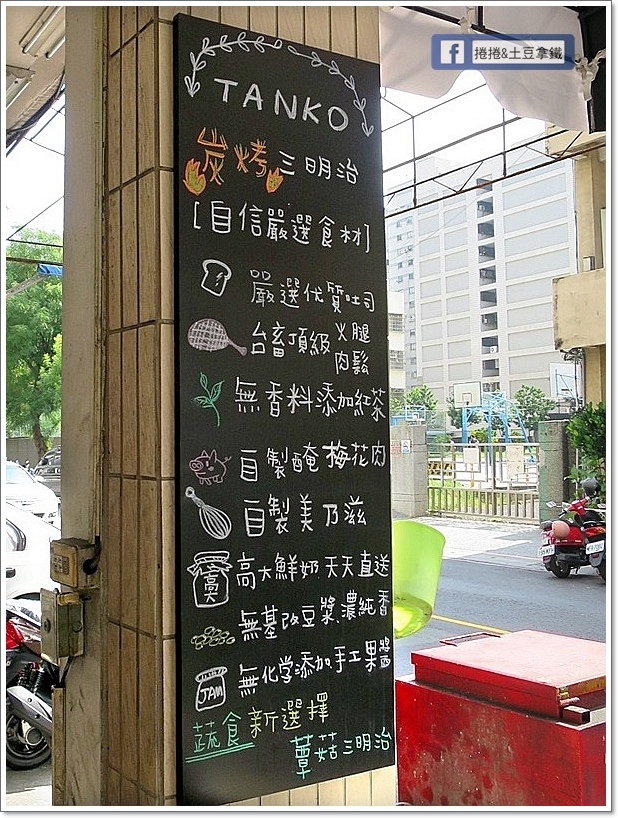 捲捲&土豆拿鐵
TANKO
炭烤三明治
[自信嚴選食材]
嚴選优質吐司
台畜頂級火腿
肉鬆
無香料添加紅茶
自製醃梅花肉
自製美乃滋
高大鮮奶天天直送
無基改豆漿濃純香
無化学添加手工果醬
JAM
蔬食新選擇
蕈菇三明治